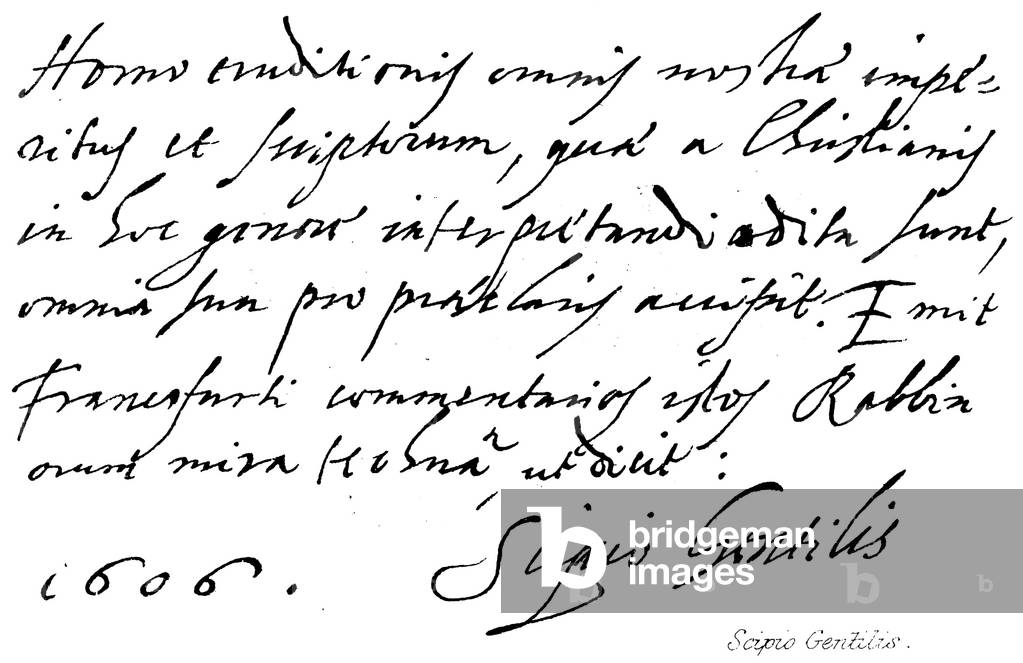 Homo eruditionis omnis nostrae impe=
ritus et scriptorum, quae a Christianis
in hoc genere interpretandi edita sunt,
omnia sua pro praeclaris accipit. Emit
Francofurti commentarios istos Rabbin
orum mira ut dicit:
1606. Scipio Gentilis
bridgeman
images
Scipio Gentilis.